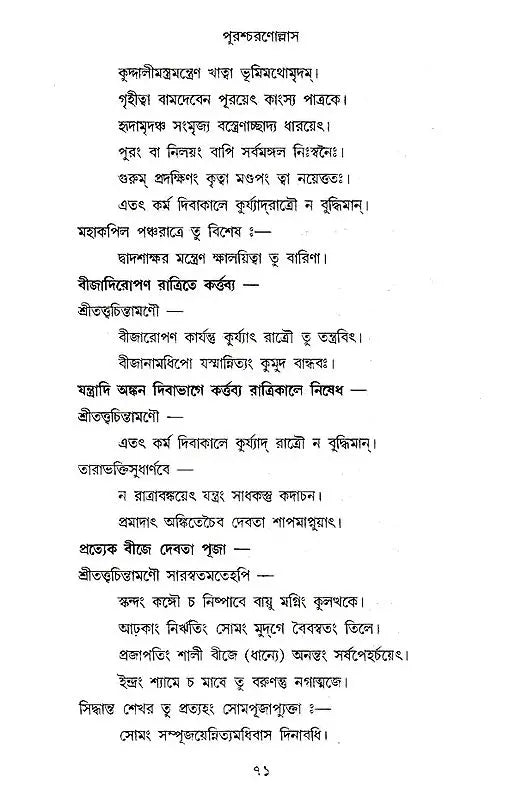 পুরশ্চরণোল্লাস
কুদ্দালীমস্ত্রমন্ত্রেণ খাত্বা ভূমিমথোমৃদম্।
গৃহীত্বা বামদেবেন পূরয়েৎ কাংস্য পাত্রকে।
হৃদামৃদঞ্চ সংমৃজ্য বস্ত্রেণাচ্ছাদ্য ধারয়েৎ।
পুরং বা নিলয়ং বাপি সর্বমঙ্গল নিঃস্বনৈঃ।
গুরুম্ প্রদক্ষিণং কৃত্বা মণ্ডপং ত্বা নয়েত্ততঃ।
এতৎ কর্ম দিবাকালে কুর্য্যাদ্‌রাত্রৌ ন বুদ্ধিমান্।
মহাকপিল পঞ্চরাত্রে তু বিশেষ ঃ—
দ্বাদশাক্ষর মন্ত্রেণ ক্ষালয়িত্বা তু বারিণা।
বীজাদিরোপণ রাত্রিতে কর্ত্তব্য —
শ্রীতত্ত্বচিন্তামণৌ —
বীজারোপণ কার্যন্তু কুর্য্যাৎ রাত্রৌ তু তন্ত্রবিৎ।
বীজানামধিপো যস্মান্নিত্যং কুমুদ বান্ধবঃ।
যন্ত্রাদি অঙ্কন দিবাভাগে কর্ত্তব্য রাত্রিকালে নিষেধ —
শ্রীতত্ত্বচিন্তামণৌ —
এতৎ কর্ম দিবাকালে কুর্য্যাদ্ রাত্রৌ ন বুদ্ধিমান্।
তারাভক্তিসুধার্ণবে —
ন রাত্রাবঙ্কয়েৎ যন্ত্রং সাধকস্তু কদাচন।
প্রমাদাৎ অঙ্কিতেচৈব দেবতা শাপমাপ্নুয়াৎ।
প্রত্যেক বীজে দেবতা পূজা —
শ্রীতত্ত্বচিন্তামণৌ সারস্বতমতেহপি —
স্কন্দং কঙ্গৌ চ নিষ্পাবে বায়ু মগ্নিং কুলত্থকে।
আঢ়কাং নির্ঋতিং সোমং মুদ্‌গে বৈবস্বতং তিলে।
প্রজাপতিং শালী বীজে (ধান্যে) অনন্তং সর্ষপেহর্চয়েৎ।
ইন্দ্রং শ্যামে চ মাষে তু বরুণস্তু নগাত্মজে।
সিদ্ধান্ত শেখর তু প্রত্যহং সোমপূজাপ্যুক্তা ঃ—
সোমং সম্পূজয়েন্নিত্যমধিবাস দিনাবধি।
৭১